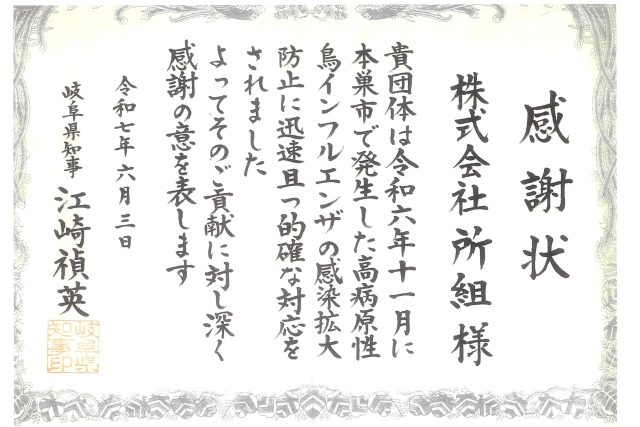 感謝状
株式会社所組様
貴団体は令和六年十一月に
本巣市で発生した高病原性
鳥インフルエンザの感染拡大
防止に迅速且つ的確な対応を
されました
よってそのご貢献に対し深く
感謝の意を表します
令和七年六月三日
岐阜県知事 江崎禎英
岐阜県
知事印